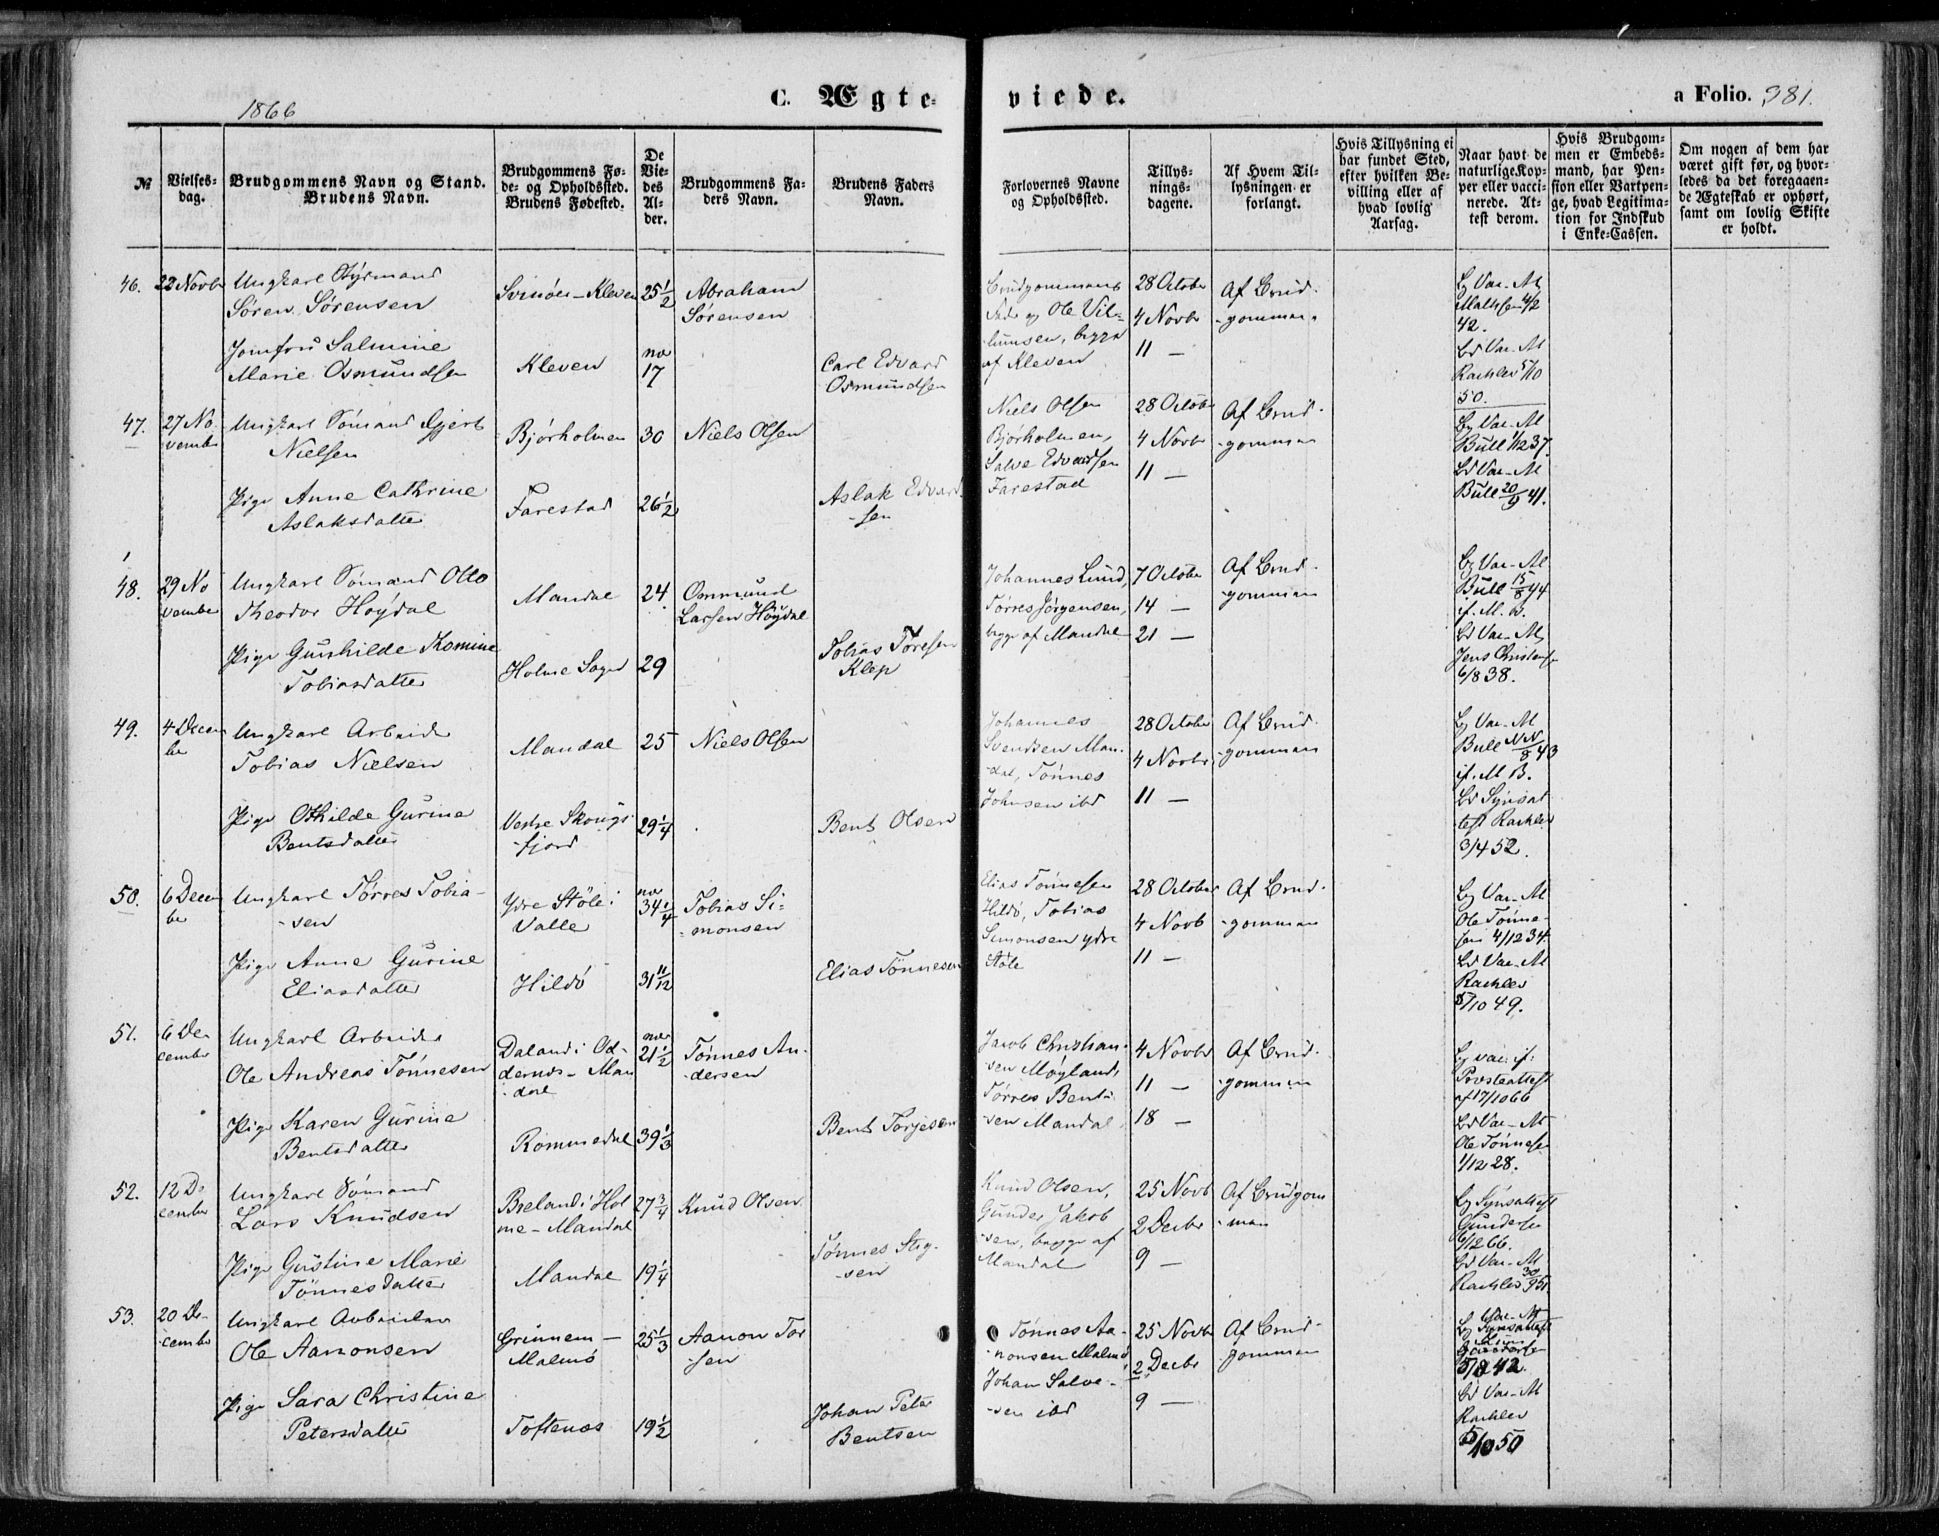 1866
C. Ægteviede.
a Folio. 381.
№
Vielses-
dag.
Brudgommens Navn og Stand.
Brudens Navn.
Brudgommens Fø-
de- og Opholdssted.
Brudens Fødested.
De
Vie-
des
Al-
der.
Brudgommens Fa-
ders Navn.
Brudens Faders
Navn.
Forlovernes Navne
og Opholdssted.
Tillys-
nings-
dagene.
Af Hvem Til-
lysningen er
forlangt.
Hvis Tillysning ei
har fundet Sted,
efter hvilken Be-
villing eller af
hvad lovlig
Aarsag.
Naar havt de
naturlige Kop-
per eller vacci-
nerede. At-
test derom.
Hvis Brudgom-
men er Embeds-
mand, har Pen-
sion eller Vartpen-
ge, hvad Legitima-
tion for Indskud
i Enke-Cassen.
Om nogen af dem har
været gift før, og hvor-
ledes da det foregaaen-
de Ægteskab er ophørt,
samt om lovlig Skifte
er holdt.
46.
22 Novbr
Ungkarl Styrmand
Søren Sørensen
Svinøer - Kleven
25 1/2
Abraham
Sørensen
Brudgommens
Fader og Ole Vil-
humsen, begge
af Kleven
28 October
4 Novbr
11 —
Af Brud-
-gommen
Bg Vac. At
Mathsen 4/2
42.
Jomfru Salmine
Marie Osmundsen
Kleven
nær
17
Carl Edvard
Osmundsen
Bd Vac. At
Rachlev 5/10
50.
47.
27 No-
vember
Ungkarl Sømand Gjert
Nielsen
Bjørholmen
30
Niels Olsen
Niels Olsen
Bjørholmen,
Salve Edvardsen
Farestad
28 October
4 Novbr
11 —
Af Brud-
-gommen
Bg Vac. At
Bull 1/12 37.
Pige Anne Cathrine
Aslaksdatter
Farestad
26 1/2
Aslak Edvard-
-sen
Bd Vac. At
Bull 20/9 41.
48.
29 No-
vember
Ungkarl Sømand Otto
Theodor Høydal
Mandal
24
Ommund
Larsen Høydal
Johannes Lund,
Tørres Jørgensen,
begge af Mandal
7 October
14 —
21 —
Af Brud-
-gommen
Bg Vac. At
Bull 15/8 44
if. M. B.
Pige Gunhilde Romine
Tobiasdatter
Holme Sogn
29
Tobias Toresen
Klep
Bd Vac. At
Jens Christensen
6/8 38.
49.
4 Decem-
ber
Ungkarl Arbeider
Tobias Nielsen
Mandal
25
Niels Olsen
Johannes
Svendsen Man-
-dal, Tønnes
Johnsen ibd
28 October
4 Novbr
11 —
Af Brud-
-gommen
Bg Vac. At
Bull NN/8 43
if. M. B.
Pige Othilde Gurine
Bentsdatter
Vestre Skougs-
-fjord
29 1/4
Bent Olsen
Bd Synsat-
test Rachlev
3/4 52.
50.
6 Decem-
ber
Ungkarl Tørres Tobia-
-sen
Ydre Støle i
Valle
nær
34 1/4
Tobias Si-
-monsen
Elias Tønnesen
Hildø, Tobias
Simonsen ydre
Støle
28 October
4 Novb
11 —
Af Brud-
-gommen
Bg Vac. At
Ole Tønne-
sen 4/12 34.
Pige Anne Gurine
Eliasdatter
Hildø
31 11/12
Elias Tønnesen
Bd Vac. At
Rachlev
5/10 49.
51.
6 De-
cember
Ungkarl Arbeider
Ole Andreas Tønnesen
Daland i Od-
dernes - Man-
-dal
nær
21 1/2
Tønnes An-
-dersen
Jacob Christian-
-sen Møyland,
Tørres Bent-
-sen Mandal
4 Novbr
11 —
18 —
Af Brud-
-gommen
Bg vac. if.
Præsteattest
af 17/10 66
Pige Karen Gurine
Bentsdatter
Rommedal
39 1/3
Bent Torjesen
Bd Vac. At
Ole Tønnesen
1/12 28.
52.
12 De-
cember
Ungkarl Sømand
Lars Knudsen
Breland i Hol-
me - Mandal
27 3/4
Knud Olsen
Knud Olsen,
Gunder Jakob-
-sen, begge af
Mandal
25 Novb
2 Decbr
9 —
Af Brudgom-
-men
Bg Synsattest
Gundersen
6/12 66.
Pige Gustine Marie
Tønnesdatter
Mandal
19 1/4
Tønnes Stig-
-sen
Bd Vac. At
Rachlev 30/9 51.
53.
20 De-
-cember
Ungkarl Arbeider
Ole Aanonsen
Grinnem -
Malmø
25 1/3
Aanon Tor-
-sen
Tønnes Aa-
-nonsen Malmø
Johan Salve-
-sen ibd
25 Novbr
2 Decbr
9 —
Af Brud-
gommen
Bg Vac. At
5/8 42.
Pige Sara Christine
Petersdatter
Toftenæs
19 1/2
Johan Peter
Bentsen
Bd Vac. At
Rachlev
5/10 50